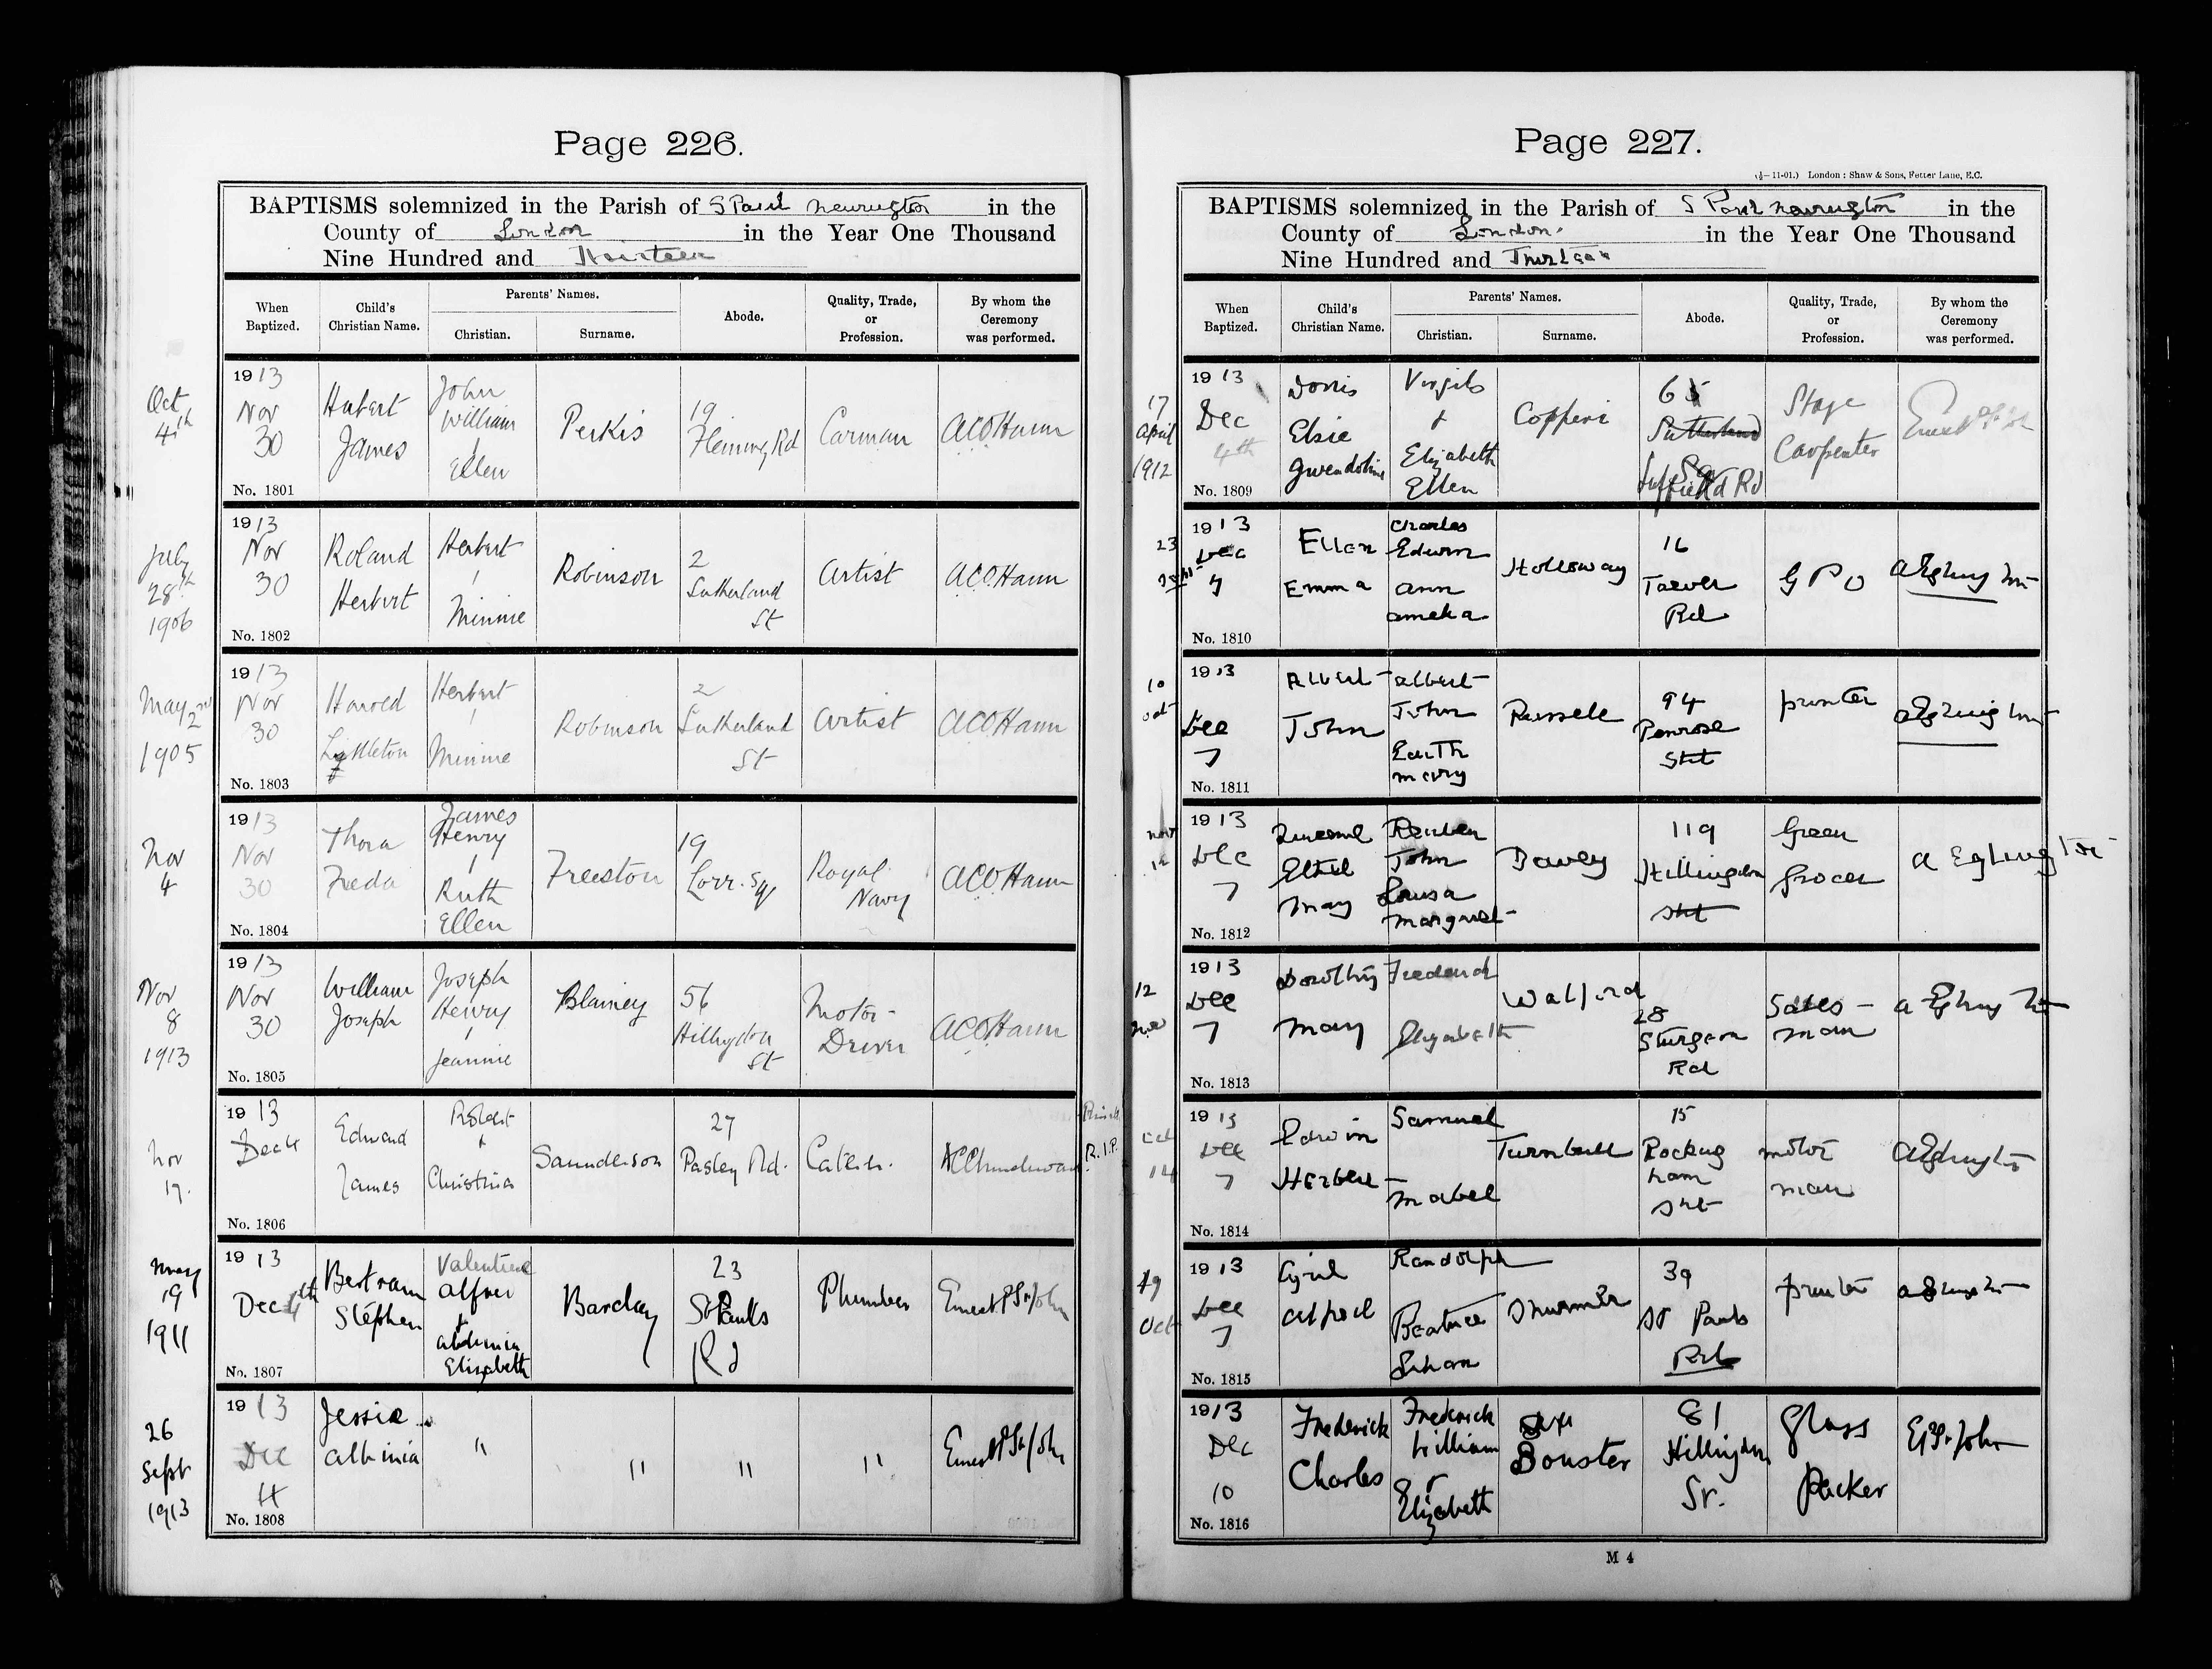 Page 226.
BAPTISMS solemnized in the Parish of S Paul Newington in the
County of London in the Year One Thousand
Nine Hundred and Thirteen
When Baptized.
Child's Christian Name.
Parents' Names.
Christian.
Surname.
Abode.
Quality, Trade, or Profession.
By whom the Ceremony was performed.
Oct 4th
1913 Nov 30
No. 1801
Hubert James
John William / Ellen
Perkis
19 Fleming Rd
Carman
ACOHann
July 28th 1906
1913 Nov 30
No. 1802
Roland Herbert
Herbert / Minnie
Robinson
2 Sutherland St
Artist
ACOHann
May 2nd 1905
1913 Nov 30
No. 1803
Harold
Herbert / Minnie
Robinson
2 Sutherland St
Artist
ACOHann
Nov 4
1913 Nov 30
No. 1804
Thora Freda
James Henry / Ruth Ellen
Freeston
19 Lorr. Sq
Royal Navy
ACOHann
Nov 8 1913
1913 Nov 30
No. 1805
William Joseph
Joseph Henry / Jeannie
Blainey
56 Hillingdon St
Motor-Driver
ACOHann
Nov 17.
1913 Dec 4
No. 1806
Edward James
Robert + Christina
Saunderson
27 Pasley Rd.
R.I.P.
May 19 1911
1913 Dec 4th
No. 1807
Bertram Stephen
Valentine Alfred + Albinia Elizabeth
Barclay
23 St Pauls Rd
Plumber
Ernest P St John
26 Sept 1913
1913 Dec 4
No. 1808
Jessie Albinia
"
"
"
"
Ernest P St John
Page 227.
(½—11-01.) London: Shaw & Sons, Fetter Lane, E.C.
BAPTISMS solemnized in the Parish of S Paul Newington in the
County of London. in the Year One Thousand
Nine Hundred and Thirteen
When Baptized.
Child's Christian Name.
Parents' Names.
Christian.
Surname.
Abode.
Quality, Trade, or Profession.
By whom the Ceremony was performed.
17 April 1912
1913 Dec 4th
No. 1809
Doris Elsie Gwendoline
Virgilo + Elizabeth Ellen
Copperi
65 Sutherland Sq Suffield Rd
Stage Carpenter
Ernest P St John
23
1913 Dec 7
No. 1810
Ellen Emma
Charles Edwin Ann Amelia
Holloway
16
Rd
G P O
A Eglington
10 Oct
1913 Dec 7
No. 1811
Albert John
Albert John Edith Mary
Russell
94 Penrose Stt
printer
A Eglington
Nov 12
1913 Dec 7
No. 1812
Ethel May
Reuben John Louisa Margaret
Davey
119 Hillingdon Stt
Green Grocer
A Eglington
12 Nov
1913 Dec 7
No. 1813
Dorothy May
Frederick Elizabeth
Walford
28 Sturgeon Rd
Sales-man
A Eglington
Oct 14
1913 Dec 7
No. 1814
Edwin Herbert
Samuel Mabel
Turnbull
15 Rockingham Stt
motor man
A Eglington
19 Oct
1913 Dec 7
No. 1815
Cyril Alfred
Randolph Beatrice
39 St Pauls Rd
printer
A Eglington
1913 Dec 10
No. 1816
Frederick Charles
Frederick William + Elizabeth
Bouster
81 Hillingdon St.
Glass Packer
E P St John
M 4